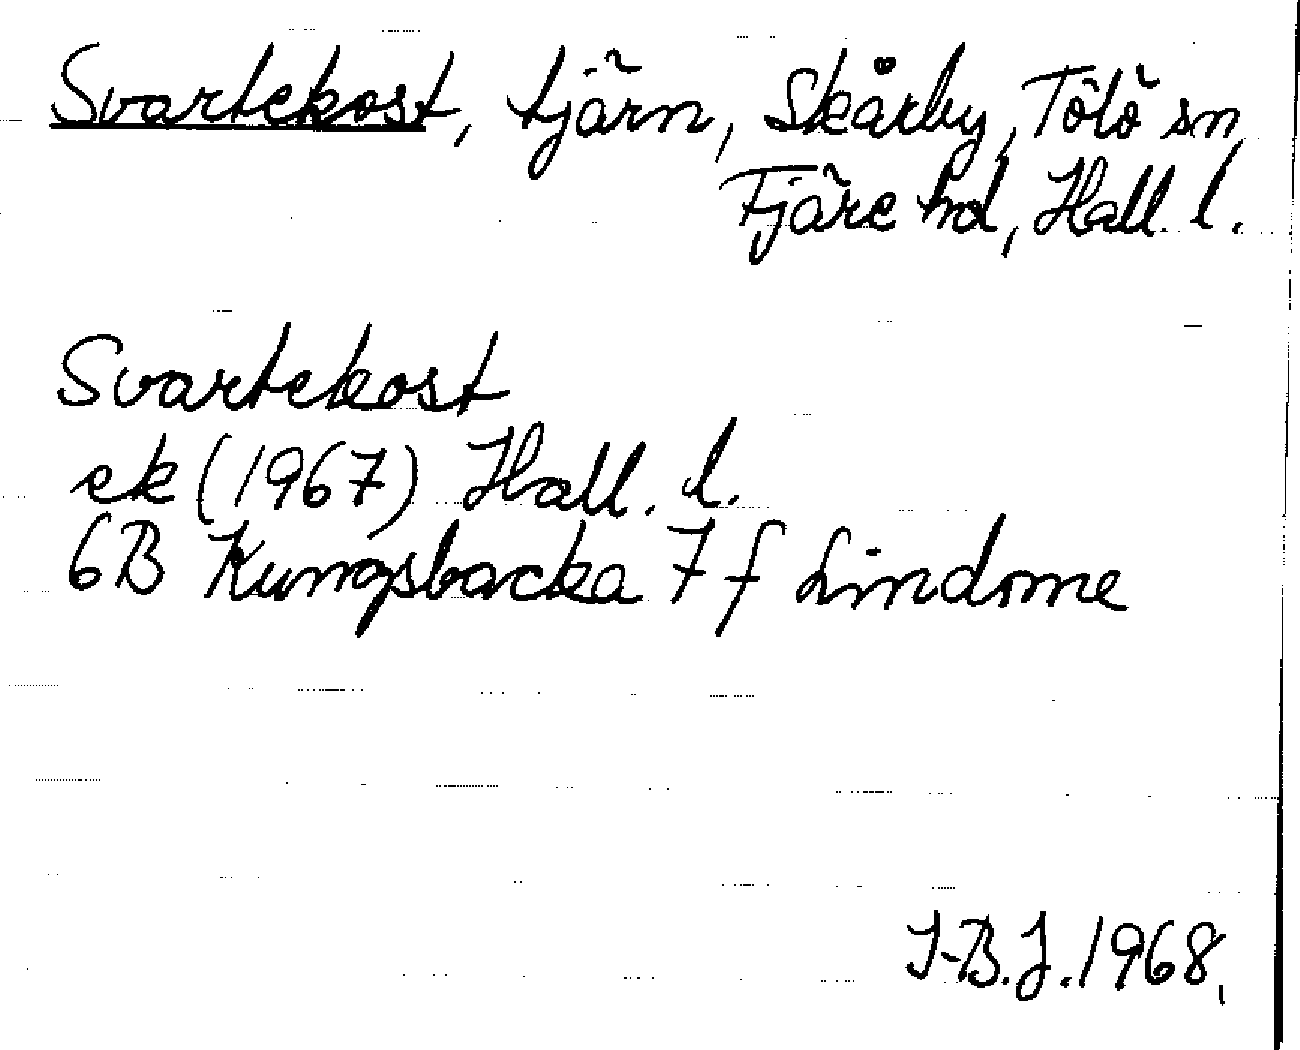 Svartekost, tjärn, Skårby, Tölö sn,
Fjäre hd, Hall. l.
Svartekost
ek (1967) Hall. l.
6B Kungsbacka 7 f Lindome
I-B.J. 1968.